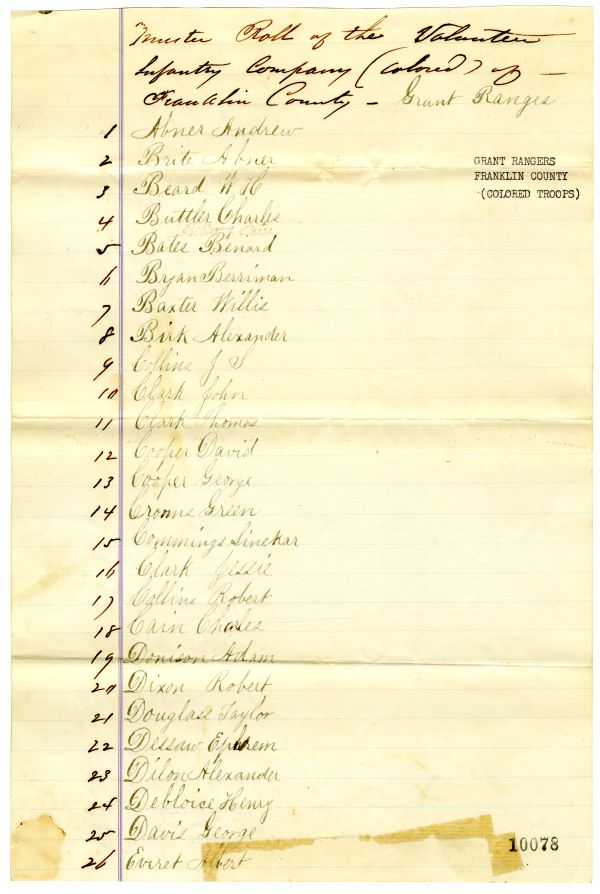 Muster Roll of the Volunteer
Infantry Company (colored) of —
Franklin County — Grant Ranges
1 Abner Andrew
2 Brite Abner
3 Beard W H
4 Buttler Charles
5 Bates Benard
6 Bryan Berriman
7 Baxter Willis
8 Birk Alexander
9 Collins J S
10 Clark John
11 Clark Thomas
12 Cooper David
13 Cooper George
14 Crooms Green
15 Commings Sinekar
16 Clark Jessie
17 Collins Robert
18 Cain Charles
19 Donison Adam
20 Dixon Robert
21 Douglass Taylor
22 Dessaw Ephrem
23 Dilon Alexander
24 Debloice Henry
25 Davis George
26 Eviret Albert
GRANT RANGERS
FRANKLIN COUNTY
(COLORED TROOPS)
10078